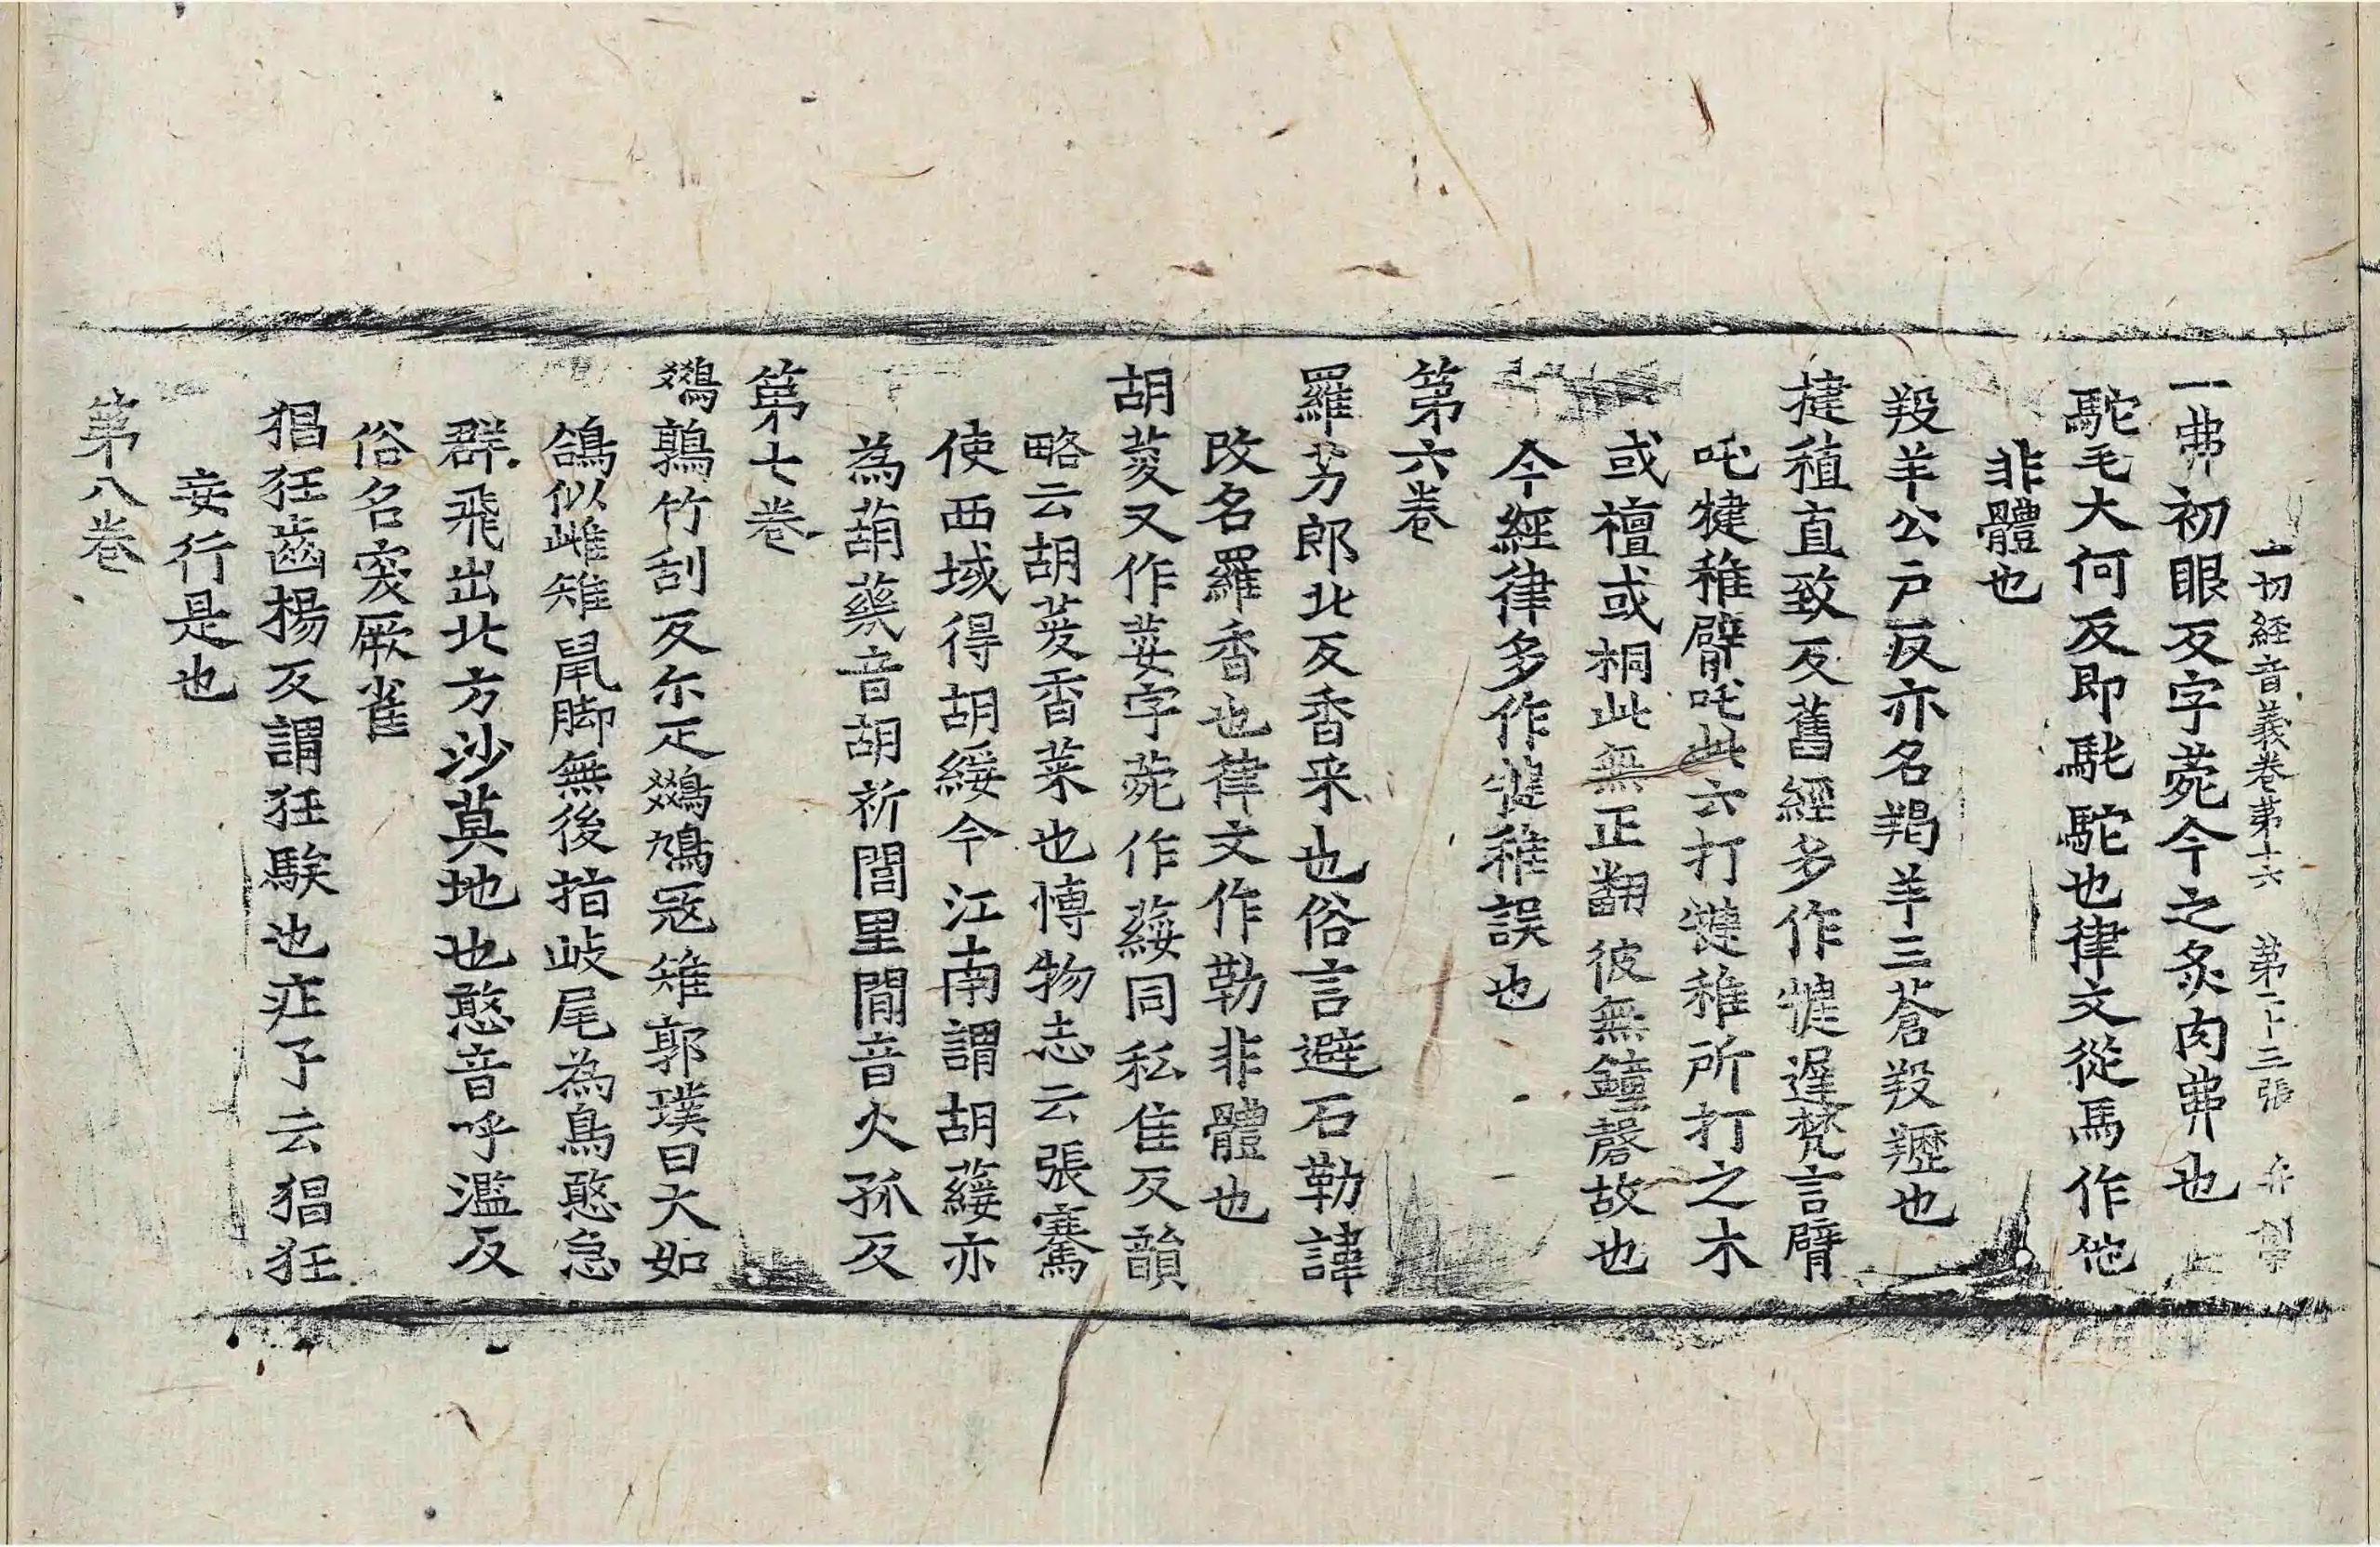 一切經音義卷第十六 第二十三張
一弗初眼反字苑今之炙肉弗也
駝毛大何反即駞駝也律文從馬作他
非體也
羖羊公戶反亦名羯羊三蒼羖䍽也
揵稙直致反舊經多作犍遲梵言臂
吒犍稚臂吒此云打犍稚所打之木
或檀或桐此無正翻彼無鐘磬故也
今經律多作犍稚誤也
第六卷
羅艻郎北反香菜也俗言避石勒諱
改名羅香也律文作勒非體也
胡荽又作荾字苑作䕑同私隹反韻
略云胡荽香菜也博物志云張騫
使西域得胡綏今江南謂胡䕑亦
為葫䕬音胡祈閭里間音火孤反
第七卷
鵽鶉竹刮反尔疋鵽鳩寇雉郭璞曰大如
鴿似雌雉鼠脚無後指岐尾為鳥憨急
群飛出北方沙莫地也憨音呼濫反
俗名突厥雀
猖狂齒楊反謂狂騃也庄子云猖狂
妄行是也
第八卷